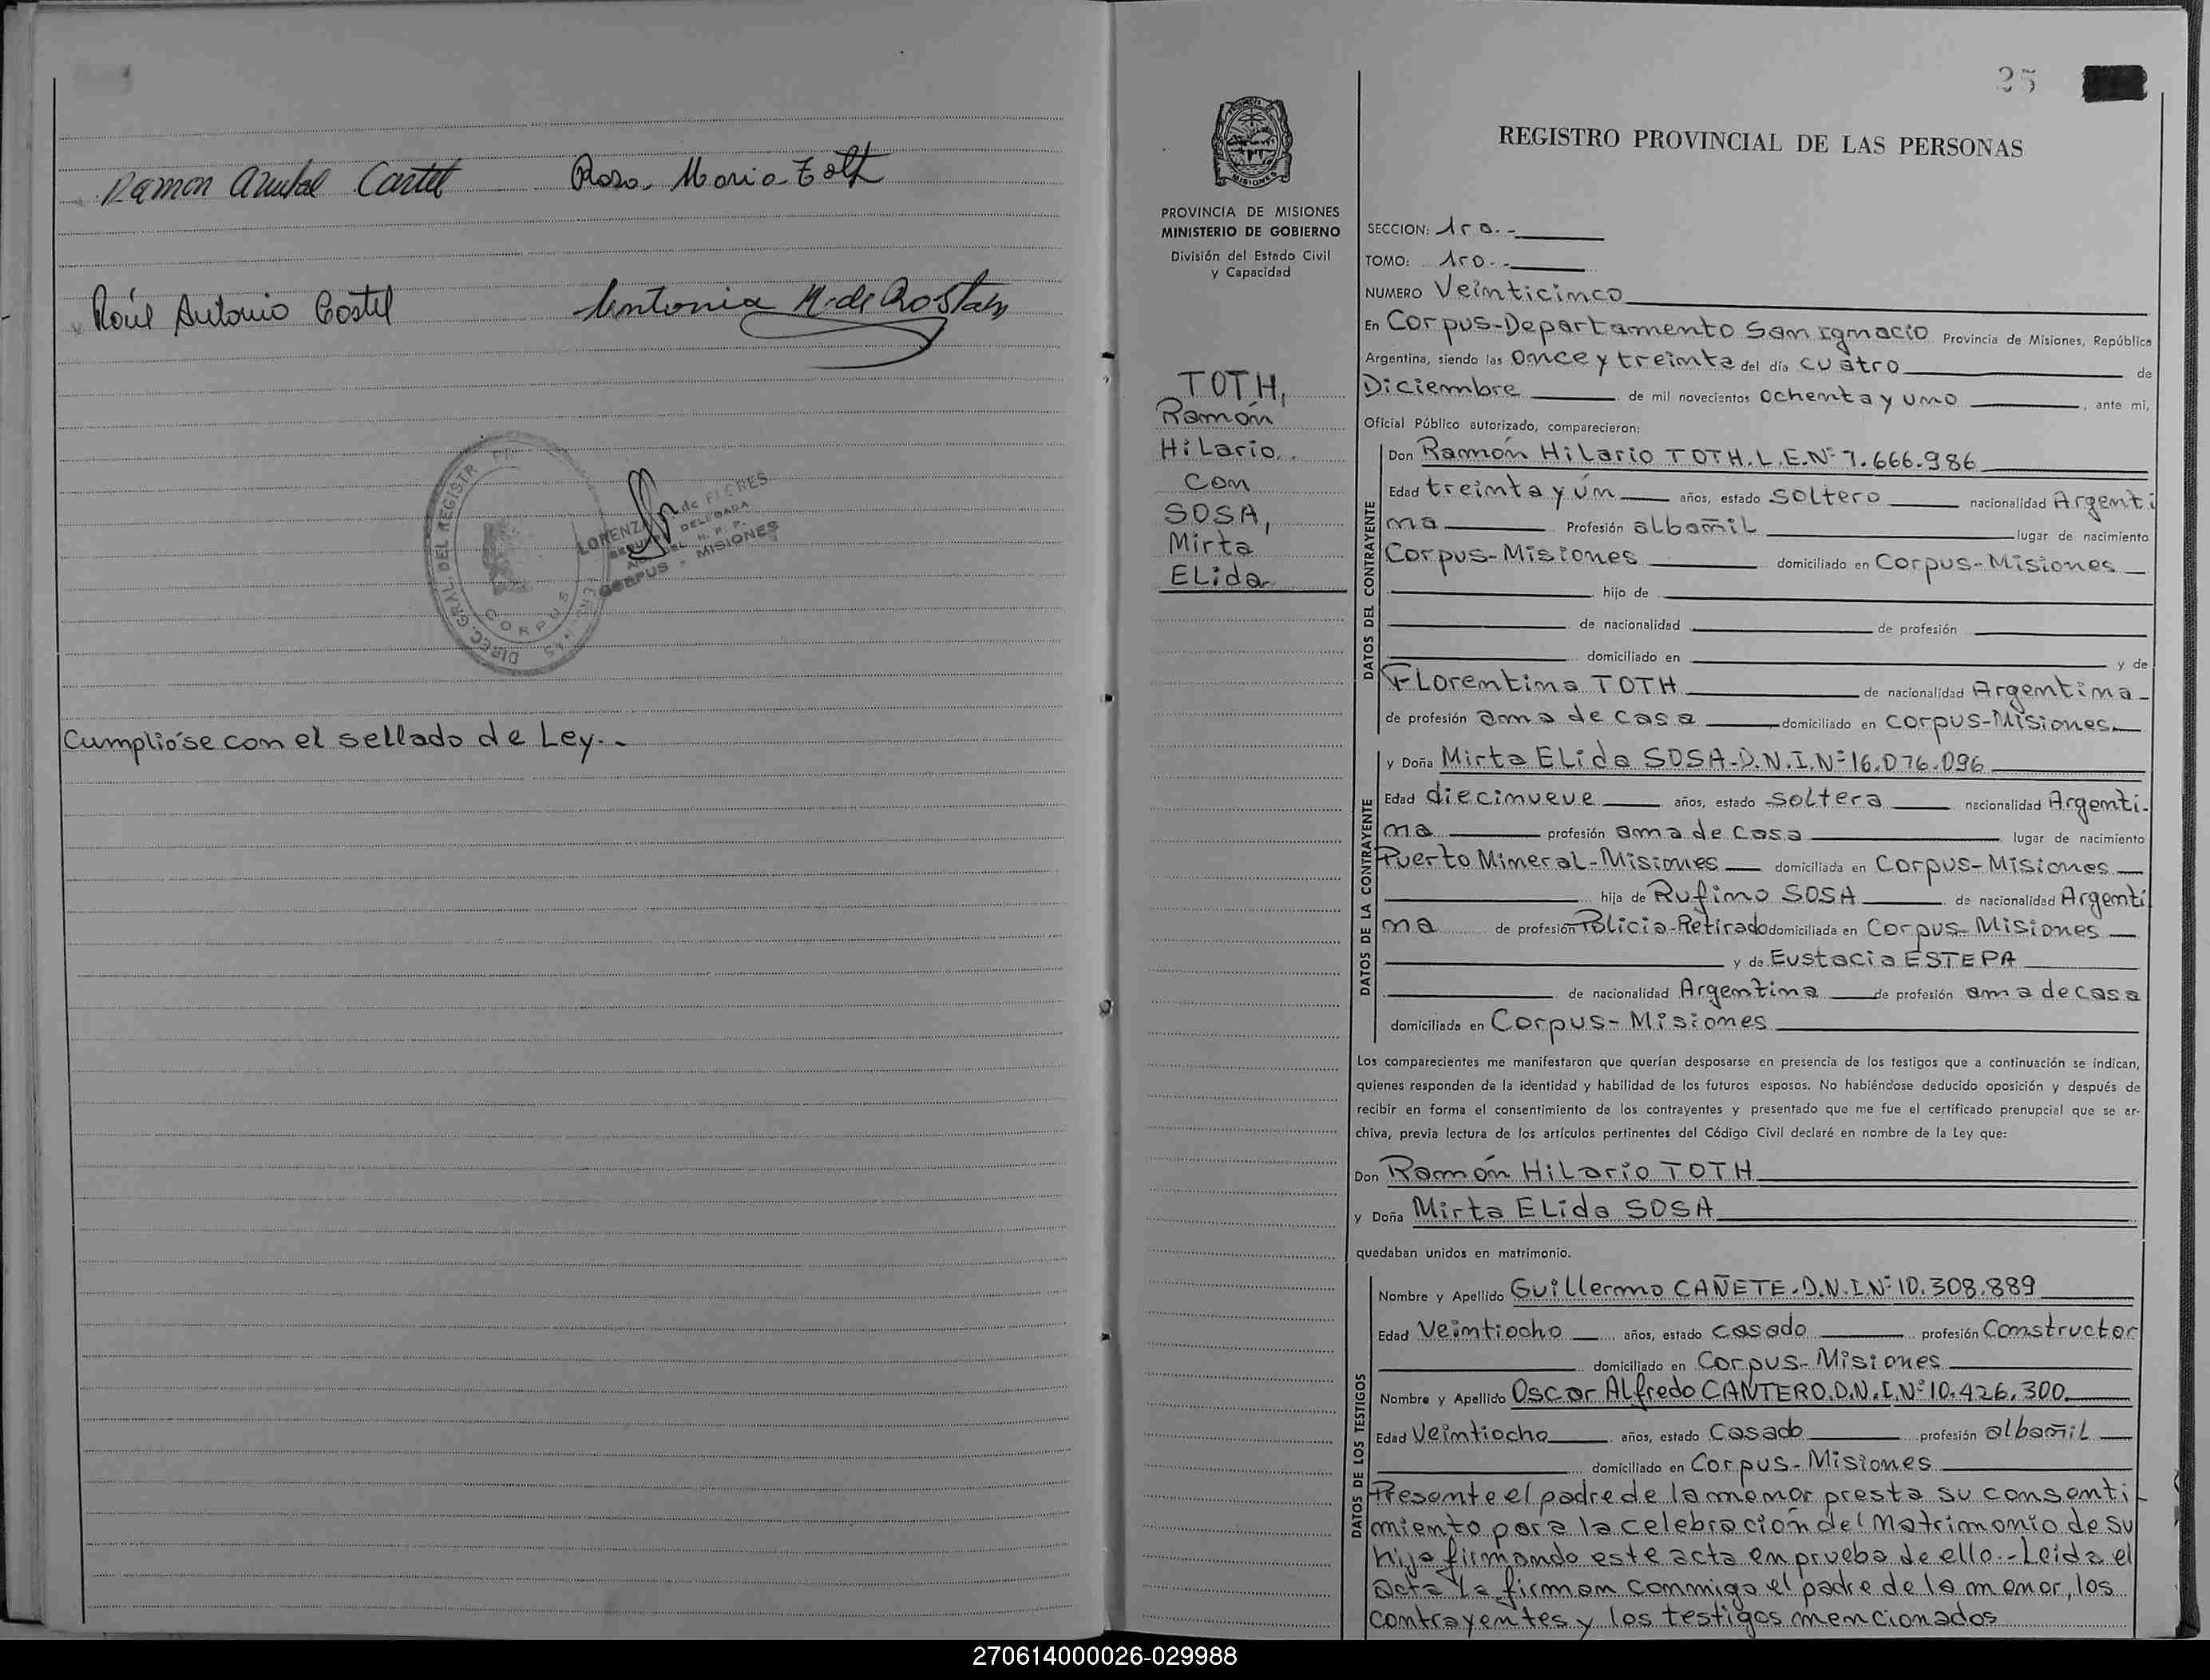 Ramon Anibal Castel Rosa Maria Toth
Raúl Antonio Costel Antonia M. de Rostan
DIREC. GRAL. DEL REGISTR
CORPUS
LORENZ de FLORES
DELEGADA
DEL R. P. P.
CORPUS - MISIONES
Cumplióse con el sellado de Ley.-
25
MISIONES
PROVINCIA DE MISIONES
MINISTERIO DE GOBIERNO
División del Estado Civil
y Capacidad
TOTH,
Ramón
Hilario
Con
SOSA,
Mirta
Elida
REGISTRO PROVINCIAL DE LAS PERSONAS
SECCION: 1ra.-
TOMO: 1ro.-
NUMERO Veinticinco
En Corpus-Departamento San Ignacio Provincia de Misiones, República
Argentina, siendo las Once y treinta del día cuatro de
Diciembre de mil novecientos ochenta y uno, ante mi,
Oficial Público autorizado, comparecieron:
DATOS DEL CONTRAYENTE
Don Ramón Hilario TOTH. L.E.Nº 7.666.986
Edad treinta y ún años, estado soltero nacionalidad Argenti
na Profesión albañil lugar de nacimiento
Corpus-Misiones domiciliado en Corpus-Misiones
hijo de
de nacionalidad de profesión
domiciliado en y de
Florentina TOTH de nacionalidad Argentina
de profesión ama de casa domiciliado en Corpus-Misiones
DATOS DE LA CONTRAYENTE
y Doña Mirta Elida SOSA-D.N.I.Nº 16.076.096
Edad diecinueve años, estado soltera nacionalidad Argenti-
na profesión ama de casa lugar de nacimiento
Puerto Mineral-Misiones domiciliada en Corpus-Misiones
hija de Rufino SOSA de nacionalidad Argenti
na de profesión Policia-Retirado domiciliada en Corpus-Misiones
y de Eustacia ESTEPA
de nacionalidad Argentina de profesión ama de casa
domiciliada en Corpus-Misiones
Los comparecientes me manifestaron que querían desposarse en presencia de los testigos que a continuación se indican,
quienes responden de la identidad y habilidad de los futuros esposos. No habiéndose deducido oposición y después de
recibir en forma el consentimiento de los contrayentes y presentado que me fue el certificado prenupcial que se ar-
chiva, previa lectura de los artículos pertinentes del Código Civil declaré en nombre de la Ley que:
Don Ramón Hilario TOTH
y Doña Mirta Elida SOSA
quedaban unidos en matrimonio.
DATOS DE LOS TESTIGOS
Nombre y Apellido Guillermo CAÑETE.D.N.I.Nº 10.308.889
Edad Veintiocho años, estado casado profesión Constructor
domiciliado en Corpus-Misiones
Nombre y Apellido Oscar Alfredo CANTERO.D.N.I.Nº 10.426.300
Edad Veintiocho años, estado Casado profesión albañil
domiciliado en Corpus-Misiones
Presente el padre de la menor presta su consenti-
miento para la celebración del Matrimonio de su
hija firmando este acta en prueba de ello.-Leida el
acta la firman conmigo el padre de la menor, los
contrayentes y los testigos mencionados
270614000026-029988